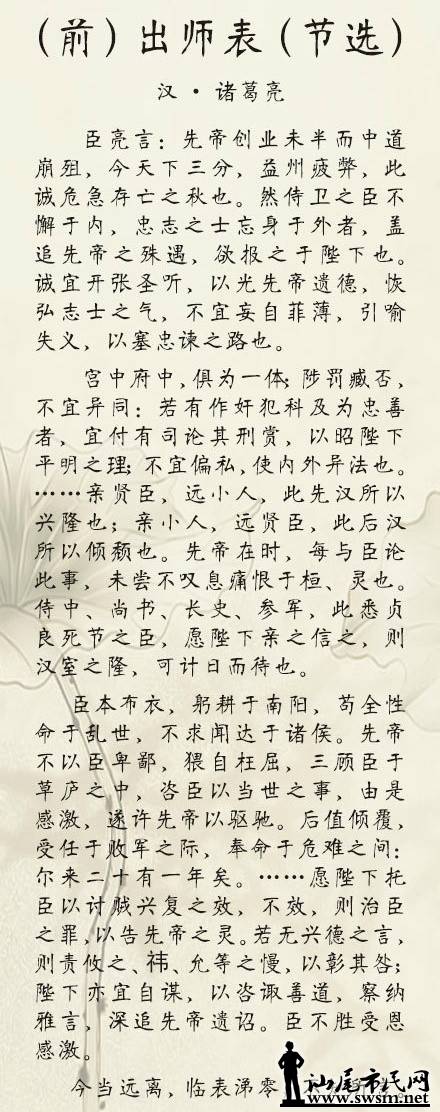 （前）出师表（节选）
汉·诸葛亮
臣亮言：先帝创业未半而中道
崩殂，今天下三分，益州疲弊，此
诚危急存亡之秋也。然侍卫之臣不
懈于内，忠志之士忘身于外者，盖
追先帝之殊遇，欲报之于陛下也。
诚宜开张圣听，以光先帝遗德，恢
弘志士之气，不宜妄自菲薄，引喻
失义，以塞忠谏之路也。
宫中府中，俱为一体；陟罚臧否，
不宜异同：若有作奸犯科及为忠善
者，宜付有司论其刑赏，以昭陛下
平明之理；不宜偏私，使内外异法也。
……亲贤臣，远小人，此先汉所以
兴隆也；亲小人，远贤臣，此后汉
所以倾颓也。先帝在时，每与臣论
此事，未尝不叹息痛恨于桓、灵也。
侍中、尚书、长史、参军，此悉贞
良死节之臣，愿陛下亲之信之，则
汉室之隆，可计日而待也。
臣本布衣，躬耕于南阳，苟全性
命于乱世，不求闻达于诸侯。先帝
不以臣卑鄙，猥自枉屈，三顾臣于
草庐之中，咨臣以当世之事，由是
感激，遂许先帝以驱驰。后值倾覆，
受任于败军之际，奉命于危难之间：
尔来二十有一年矣。……愿陛下托
臣以讨贼兴复之效，不效，则治臣
之罪，以告先帝之灵。若无兴德之言，
则责攸之、祎、允等之慢，以彰其咎；
陛下亦宜自谋，以咨诹善道，察纳
雅言，深追先帝遗诏。臣不胜受恩
感激。
今当远离，临表涕零
汕尾市民网
www.swsm.net